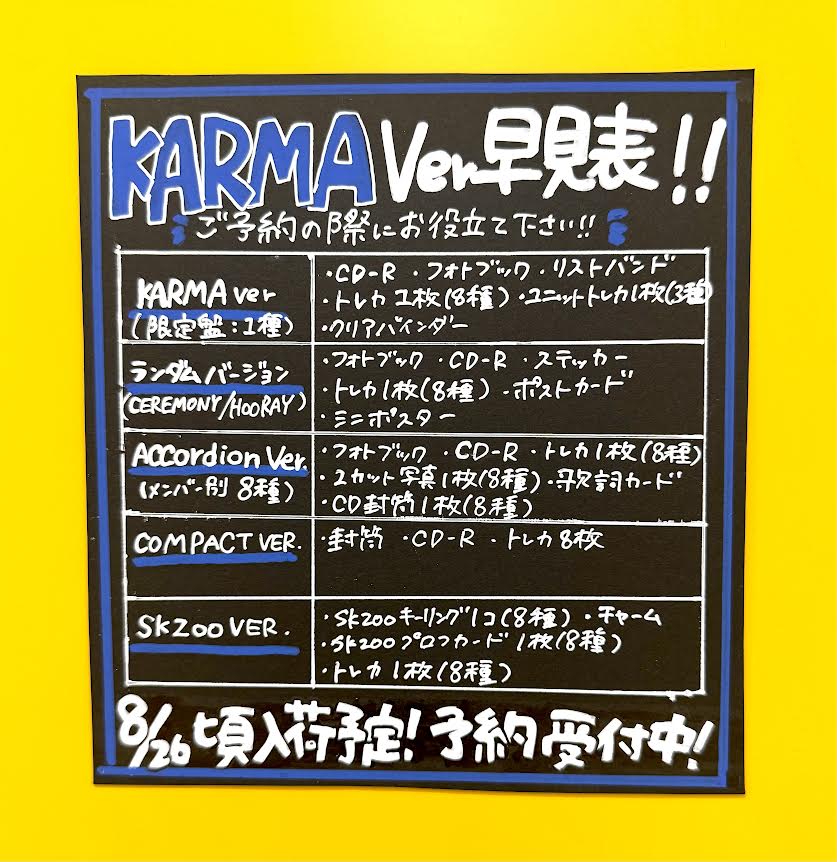 KARMA Ver早見表!!
ご予約の際にお役立て下さい!!
KARMA ver
(限定盤:1種)
・CD-R ・フォトブック ・リストバンド
・トレカ1枚(8種) ・ユニットトレカ1枚(3種)
・クリアバインダー
ランダムバージョン
(CEREMONY/HOORAY)
・フォトブック ・CD-R ・ステッカー
・トレカ1枚(8種) ・ポストカード
・ミニポスター
Accordion Ver.
(メンバー別 8種)
・フォトブック ・CD-R ・トレカ1枚(8種)
・2カット写真1枚(8種) ・歌詞カード
・CD封筒1枚(8種)
COMPACT VER.
・封筒 ・CD-R ・トレカ8枚
SKZOO VER.
・SKZOOキーリング1コ(8種) ・チャーム
・SKZOOプロフカード 1枚(8種)
・トレカ1枚(8種)
8/26頃入荷予定! 予約受付中!